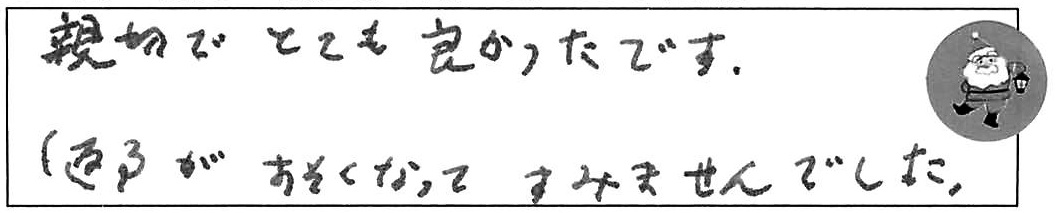 親切で とても 良かったです.
が おそくなって すみませんでした。